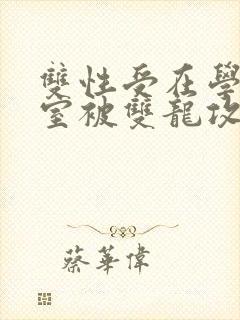 雙性受在學
室被雙龍攻
蔡華偉